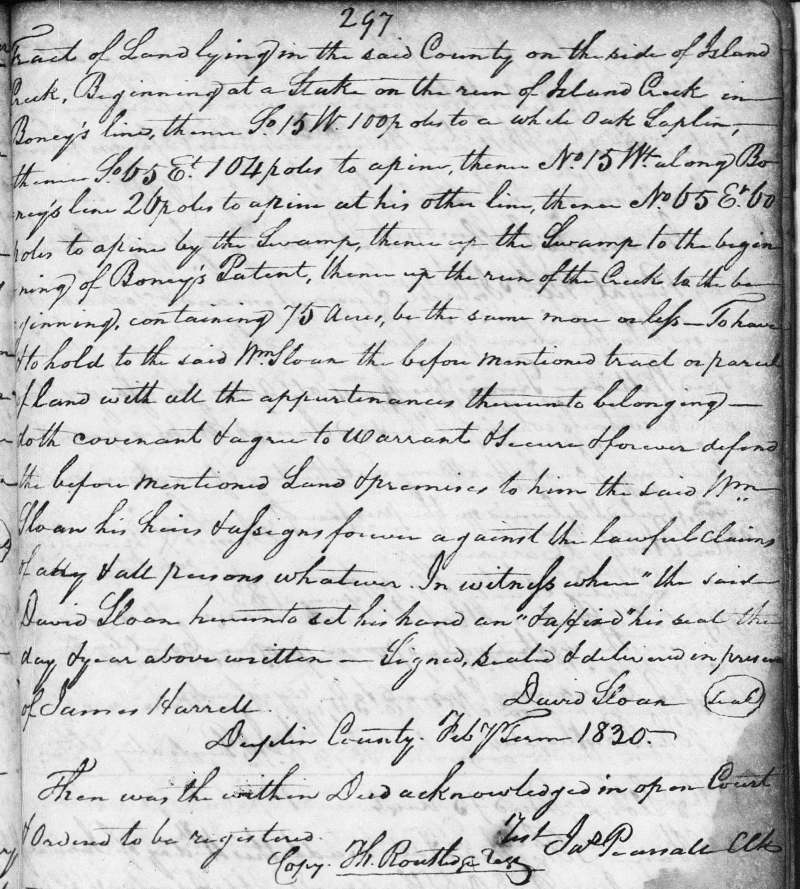 297
Tract of Land lying in the said County on the side of Island
Creek, Beginning at a Stake on the run of Island Creek in
Boney's line, thence So 15 W. 100 poles to a white Oak Saplin,
thence So 65 Et. 104 poles to a pine, thence No 15 Wt. along Bo-
ney's line 26 poles to a pine at his other line, thence No 65 Et. 60
poles to a pine by the Swamp, thence up the Swamp to the begin
ning of Boney's Patent, thence up the run of the Creek to the be
ginning, containing 75 Acres, be the same more or less — To have
& to hold to the said Wm Sloan the before mentioned tract or parcel
of Land with all the appurtenances thereunto belonging —
doth covenant & agree to Warrant & Secure & forever defend
the before mentioned Land & premises to him the said Wm
Sloan his heirs & assigns forever against the lawful claims
of any & all persons whatever. In witness where" the said
David Sloan hereunto set his hand an" & affixd" his seal the
day & year above written — Signed, sealed & delivered in presence
of James Harrell. David Sloan (seal)
Duplin County. Feby Term 1820.—
Then was the within Deed acknowledged in open Court
& Ordered to be registered.
Test Jas Pearsall Clk
Copy. Th. Routledge Regr